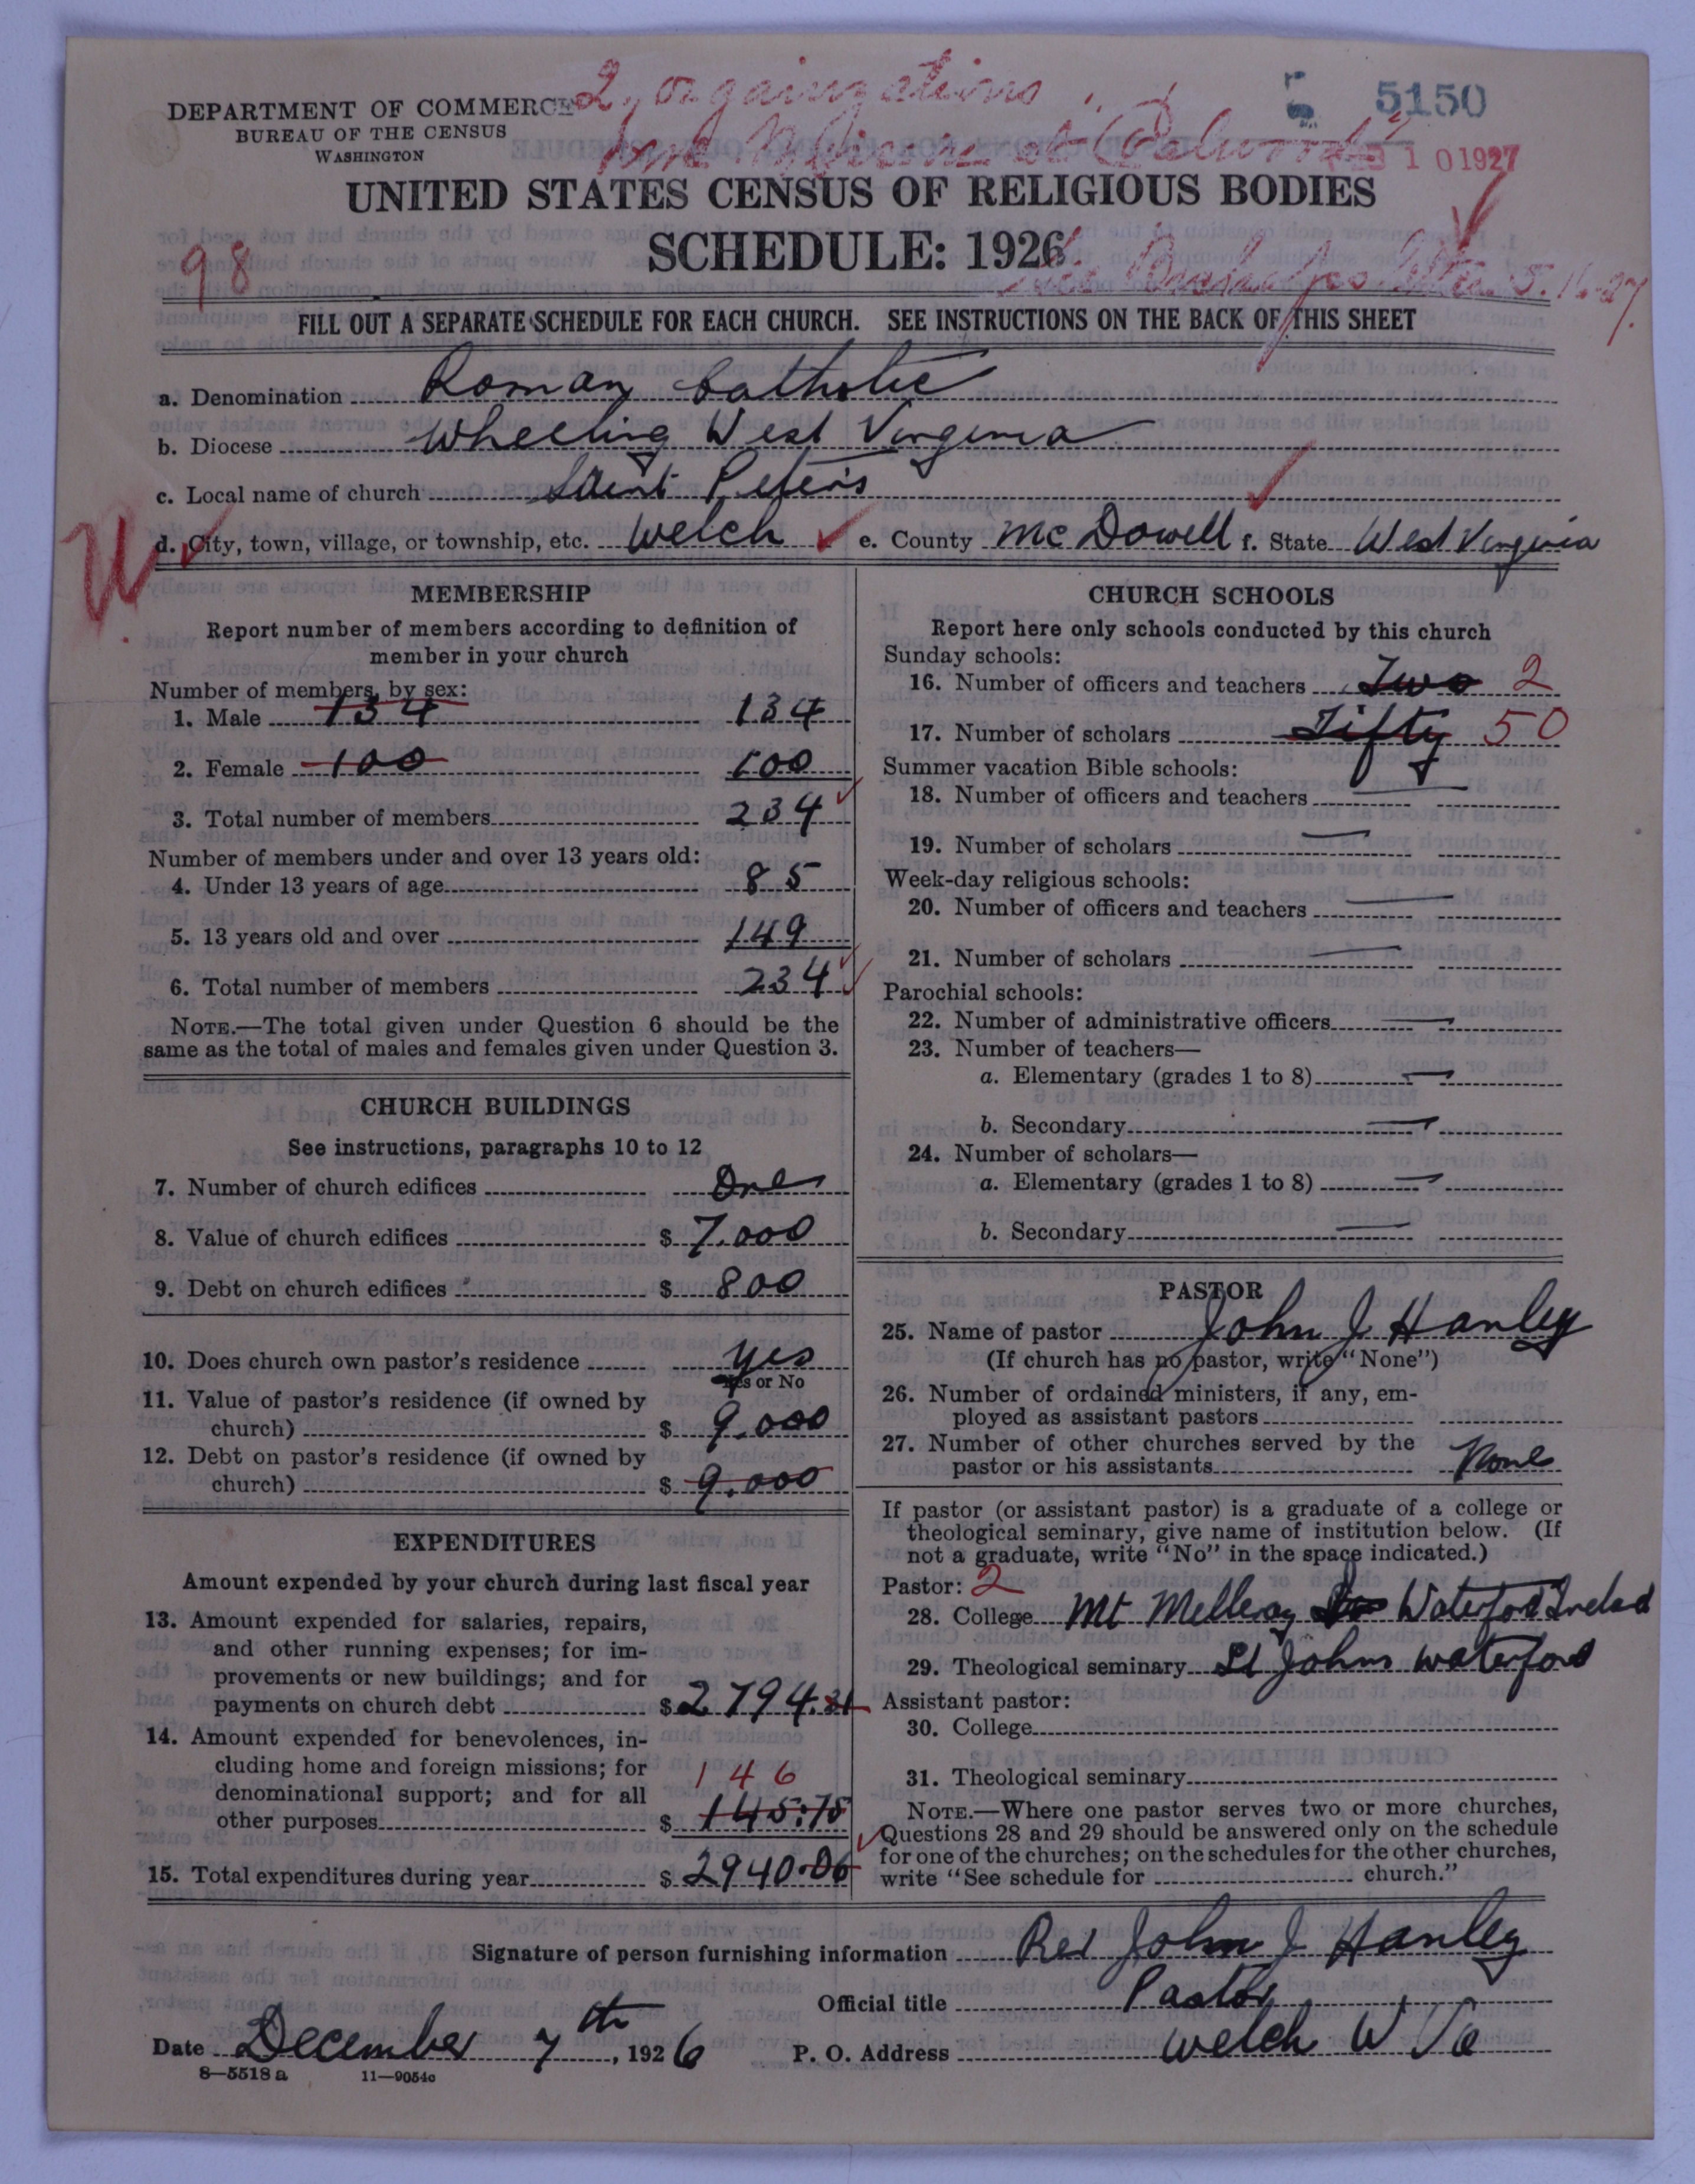 DEPARTMENT OF COMMERCE
BUREAU OF THE CENSUS
WASHINGTON
2, organizations
5 5150
at
FEB 10 1927
UNITED STATES CENSUS OF RELIGIOUS BODIES
SCHEDULE: 1926
98
FILL OUT A SEPARATE SCHEDULE FOR EACH CHURCH. SEE INSTRUCTIONS ON THE BACK OF THIS SHEET
a. Denomination Roman Catholic
b. Diocese Wheeling West Virginia
c. Local name of church Saint Peter's
d. City, town, village, or township, etc. Welch e. County McDowell f. State West Virginia
MEMBERSHIP
Report number of members according to definition of
member in your church
Number of members by sex:
1. Male 134 134
2. Female 100 100
3. Total number of members 234
Number of members under and over 13 years old:
4. Under 13 years of age 85
5. 13 years old and over 149
6. Total number of members 234
NOTE.—The total given under Question 6 should be the
same as the total of males and females given under Question 3.
CHURCH BUILDINGS
See instructions, paragraphs 10 to 12
7. Number of church edifices One
8. Value of church edifices $ 7.000
9. Debt on church edifices $ 800
10. Does church own pastor's residence Yes
Yes or No
11. Value of pastor's residence (if owned by
church) $ 9.000
12. Debt on pastor's residence (if owned by
church) $ 9.000
EXPENDITURES
Amount expended by your church during last fiscal year
13. Amount expended for salaries, repairs,
and other running expenses; for im-
provements or new buildings; and for
payments on church debt $ 2794.31
14. Amount expended for benevolences, in-
cluding home and foreign missions; for
denominational support; and for all 146
other purposes $ 145:75
15. Total expenditures during year $ 2940.06
CHURCH SCHOOLS
Report here only schools conducted by this church
Sunday schools:
16. Number of officers and teachers Two 2
17. Number of scholars Fifty 50
Summer vacation Bible schools:
18. Number of officers and teachers —
19. Number of scholars —
Week-day religious schools:
20. Number of officers and teachers —
21. Number of scholars —
Parochial schools:
22. Number of administrative officers —
23. Number of teachers—
a. Elementary (grades 1 to 8) —
b. Secondary —
24. Number of scholars—
a. Elementary (grades 1 to 8) —
b. Secondary —
PASTOR
25. Name of pastor John J Hanley
(If church has no pastor, write "None")
26. Number of ordained ministers, if any, em-
ployed as assistant pastors
27. Number of other churches served by the
pastor or his assistants None
If pastor (or assistant pastor) is a graduate of a college or
theological seminary, give name of institution below. (If
not a graduate, write "No" in the space indicated.)
Pastor: 2
28. College Mt Melleray Waterford Ireland
29. Theological seminary St Johns Waterford
Assistant pastor:
30. College
31. Theological seminary
NOTE.—Where one pastor serves two or more churches,
Questions 28 and 29 should be answered only on the schedule
for one of the churches; on the schedules for the other churches,
write "See schedule for church."
Signature of person furnishing information Rev John J Hanley
Official title Pastor
Date December 7th, 1926 P. O. Address Welch W Va
8—5518a 11—9054c